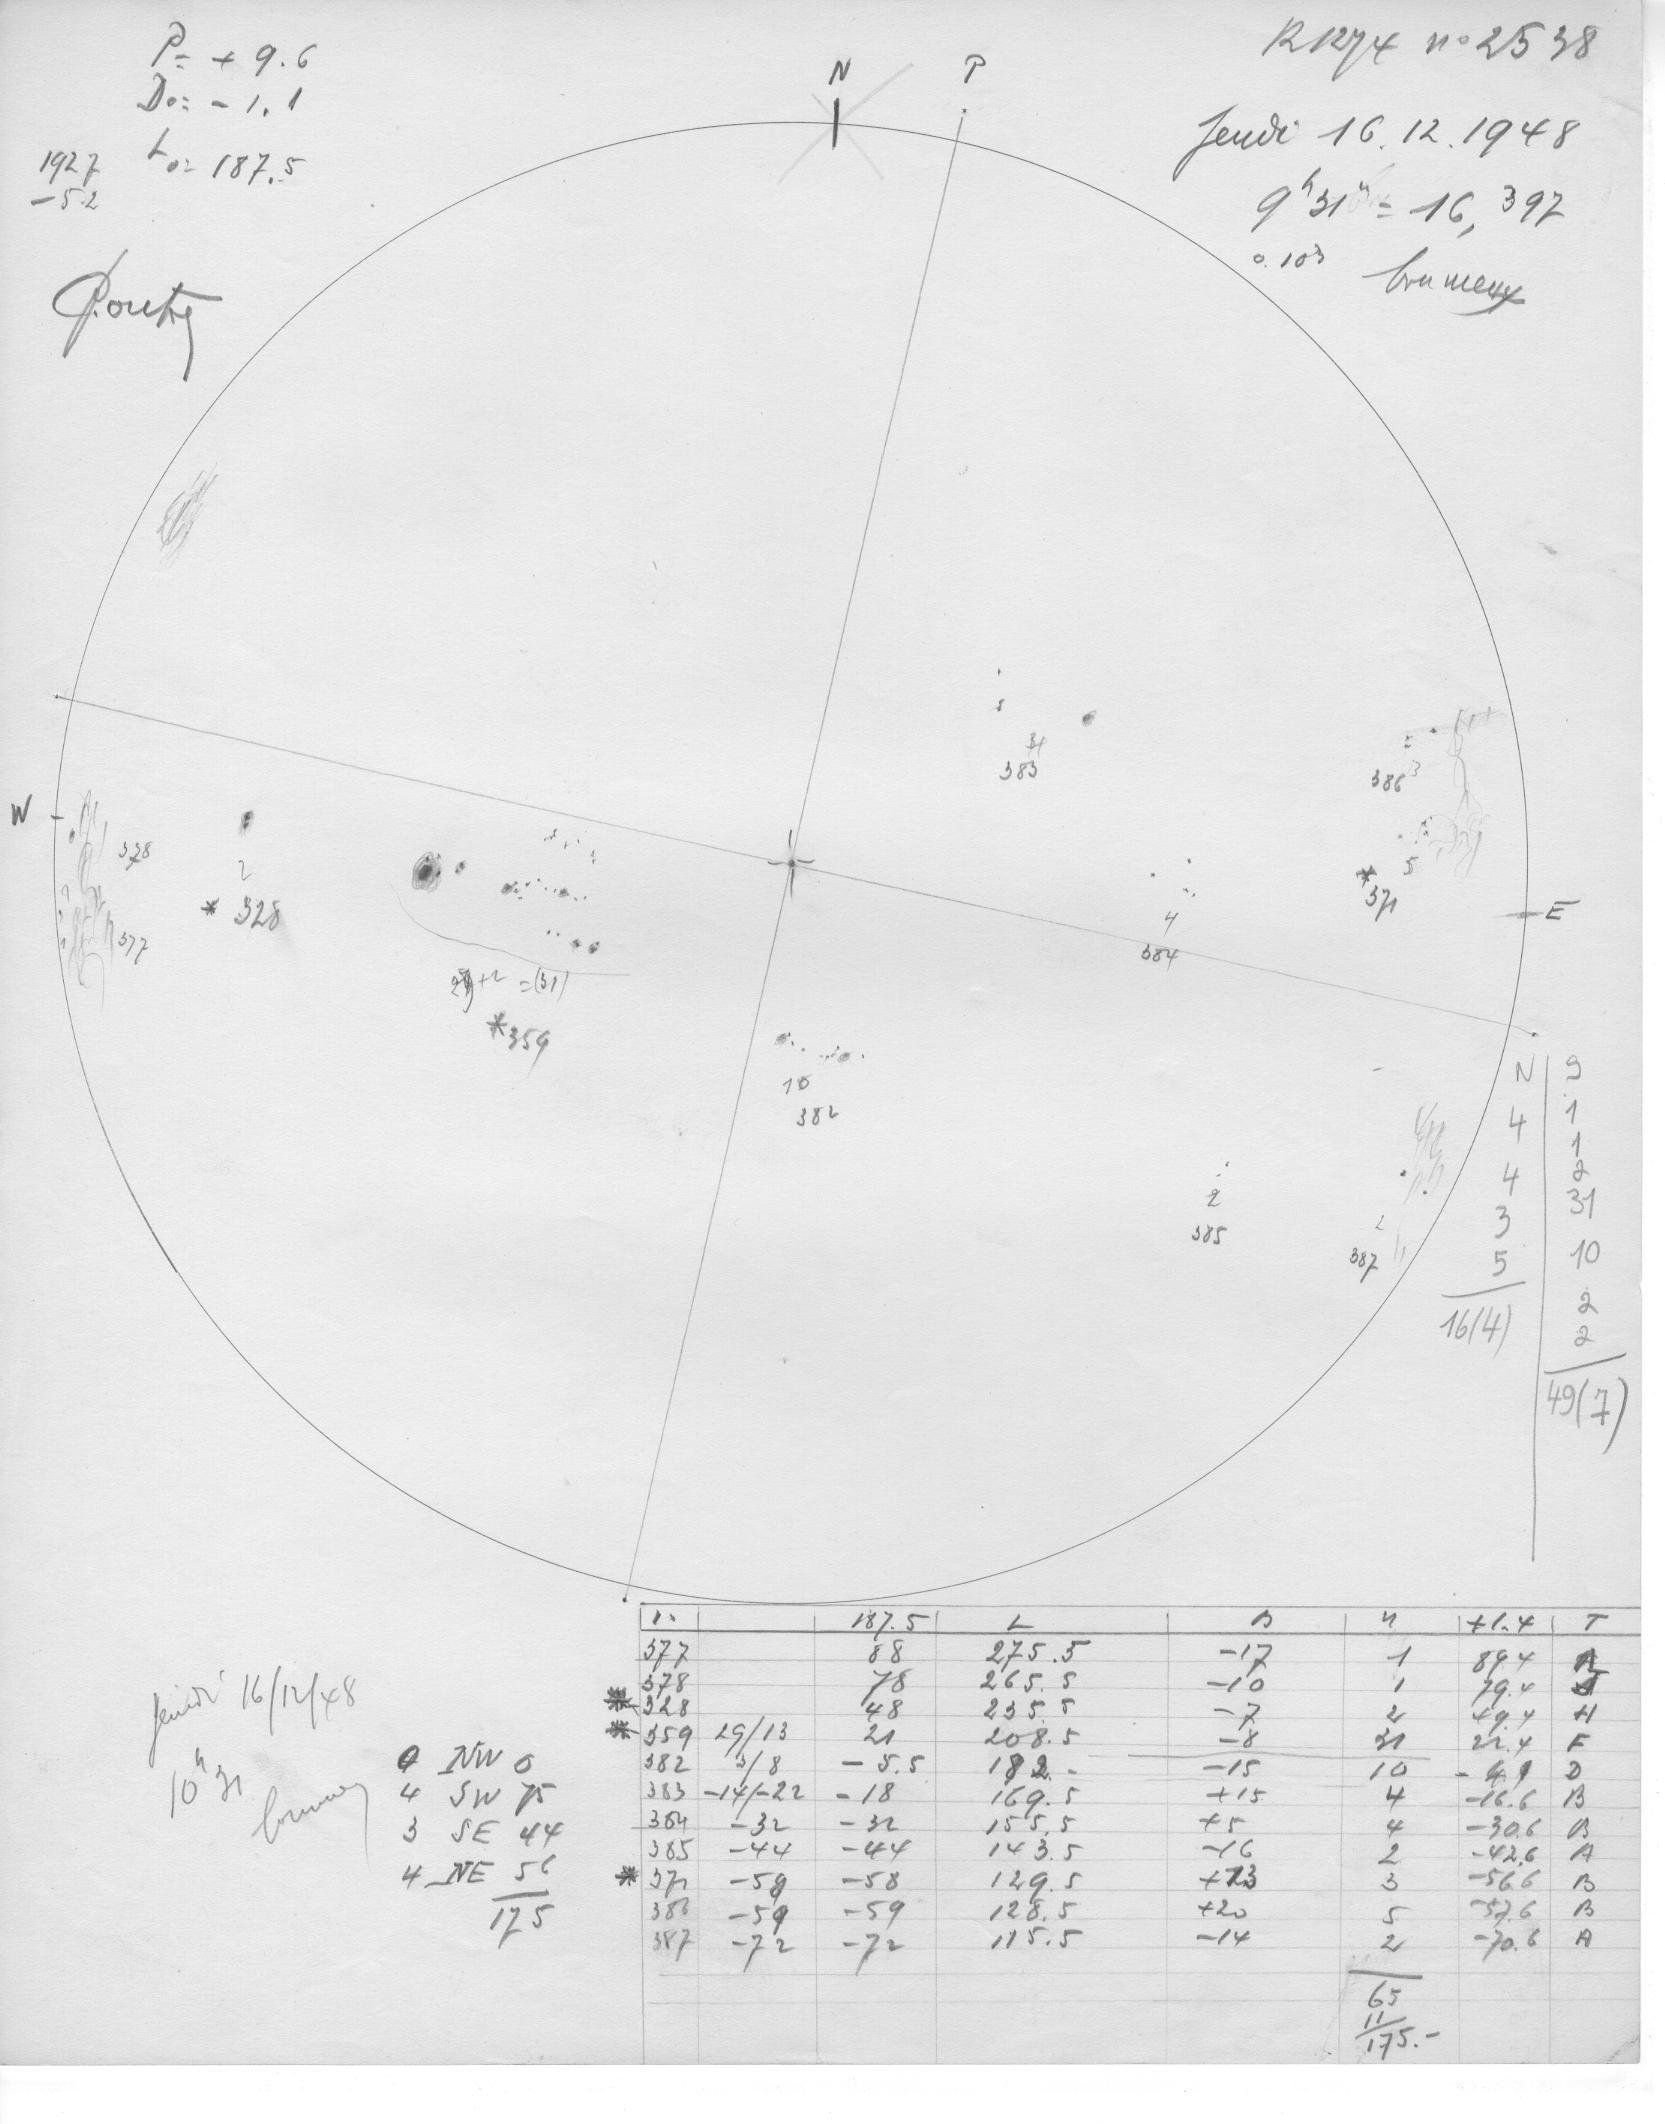 P= + 9.6
Do= - 1.1
Lo= 187.5
1927
-52
N
P
R1274 no 2538
Jeudi 16.12.1948
9h31m = 16,397
0.103
brumeux
W
E
378
377
2
* 328
31
383
386 3
5
* 371
4
384
29+2 =(31)
*359
10
382
2
385
2
387
N S
4 1
1
4 2
3 31
5 10
16(4) 2
2
49(7)
187.5 L B n +1.4 T
377 88 275.5 -17 1 89.4 A
378 78 265.5 -10 1 79.4 J
* 328 48 235.5 -7 2 49.4 H
* 359 29/13 21 208.5 -8 31 22.4 F
382 3/8 -5.5 182.- -15 10 -4.1 D
383 -14/-22 -18 169.5 +15 4 -16.6 B
384 -32 -32 155.5 +5 4 -30.6 B
385 -44 -44 143.5 -16 2 -42.6 A
* 371 -58 -58 129.5 +13 3 -56.6 B
386 -59 -59 128.5 +20 5 -57.6 B
387 -72 -72 115.5 -14 2 -70.6 A
65
11
175.-
Jeudi 16/12/48
10h31
0 NW 0
4 SW 75
3 SE 44
4 NE 56
175